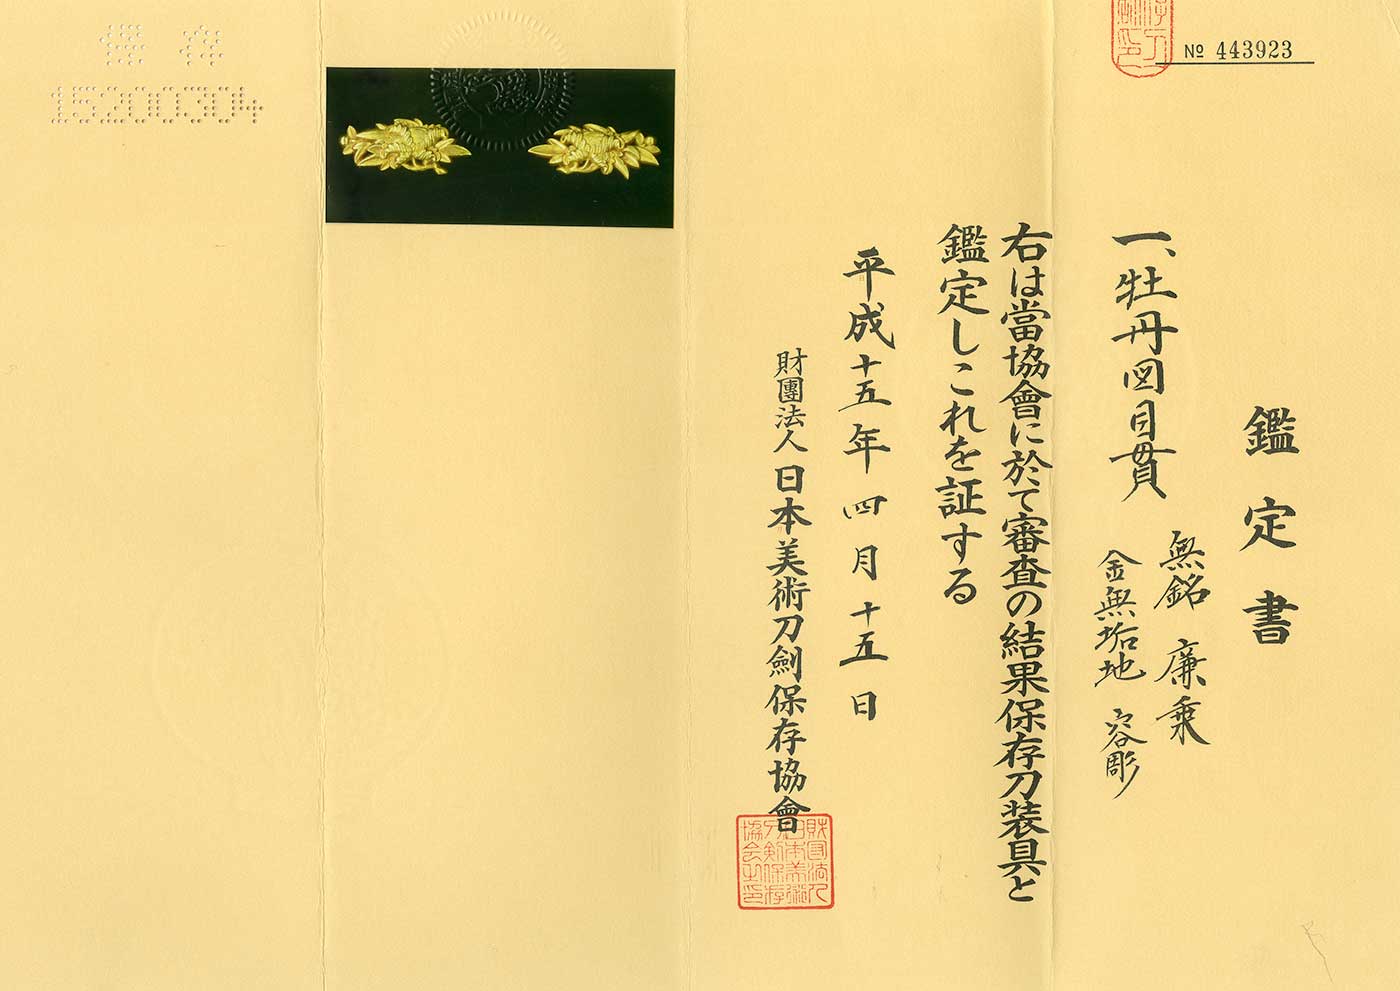 № 443923
鑑定書
一、牡丹図目貫
無銘 廉乗
金無垢地 容彫
右は當協會に於て審査の結果保存刀装具と
鑑定しこれを証する
平成十五年四月十五日
財團法人日本美術刀劍保存協會
財団法人
日本美術
刀剣保存
協会之印
保存
15200304